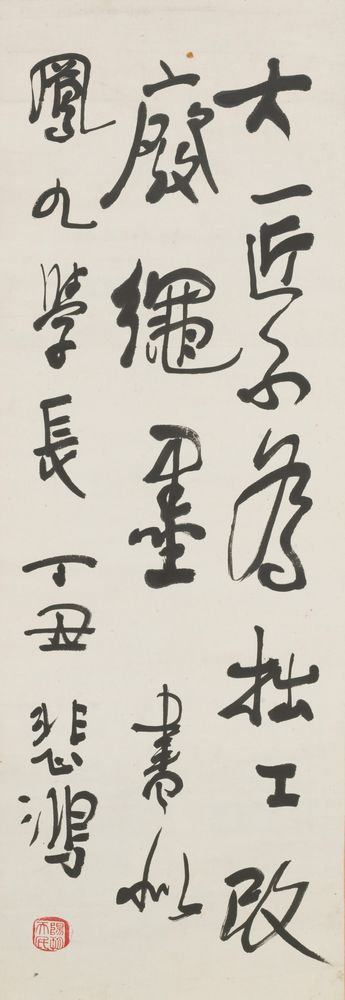 大匠不為拙工改
廢繩墨 書似
鳳九學長 丁丑 悲鴻